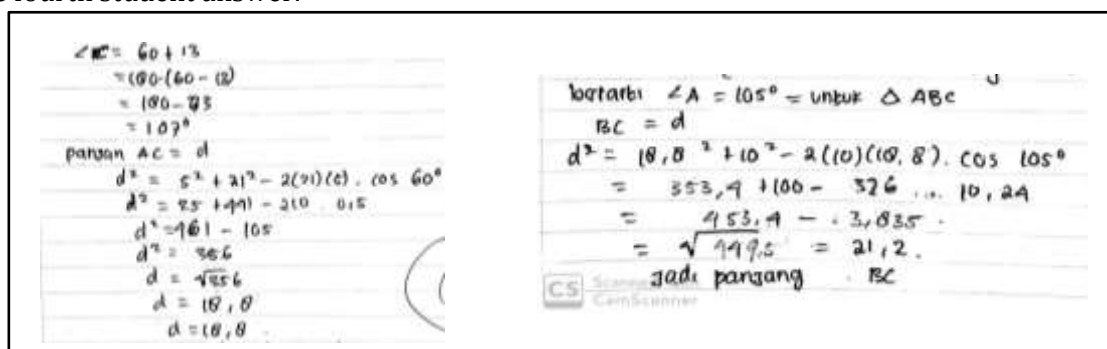 ∠C = 60 + 13
= 180-(60 - 13)
= 180-73
= 107°
panjan AC = d
d² = 5² + 21² - 2(21)(5). cos 60°
d² = 25 + 441 - 210 . 0,5
d² = 461 - 105
d² = 356
d = √356
d = 18,8
d = 18,8
berarti ∠A = 105° = untuk △ ABC
BC = d
d² = 18,8² + 10² - 2(10)(18,8). cos 105°
= 353,4 + 100 - 376 ... 10,24
= 453,4 - . 3,835 .
= √449,5 = 21,2.
Jadi panjang . BC
CS
CamScanner